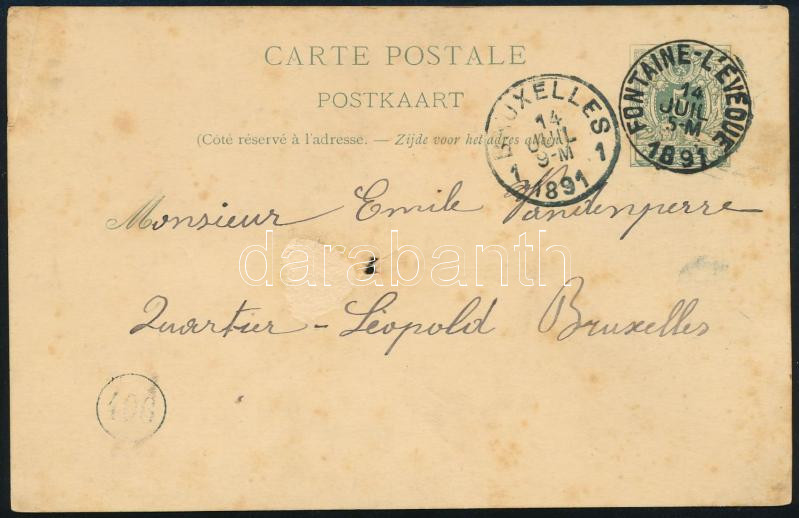 CARTE POSTALE
POSTKAART
(Côté réservé à l'adresse. — Zijde voor het adres
BRUXELLES 1
14
JUIL
9-M
1 1891
FONTAINE-L'EVEQUE
14
JUIL
5-M
1891
Monsieur Emile Vandenperre
darabanth
Quartier - Léopold Bruxelles
106